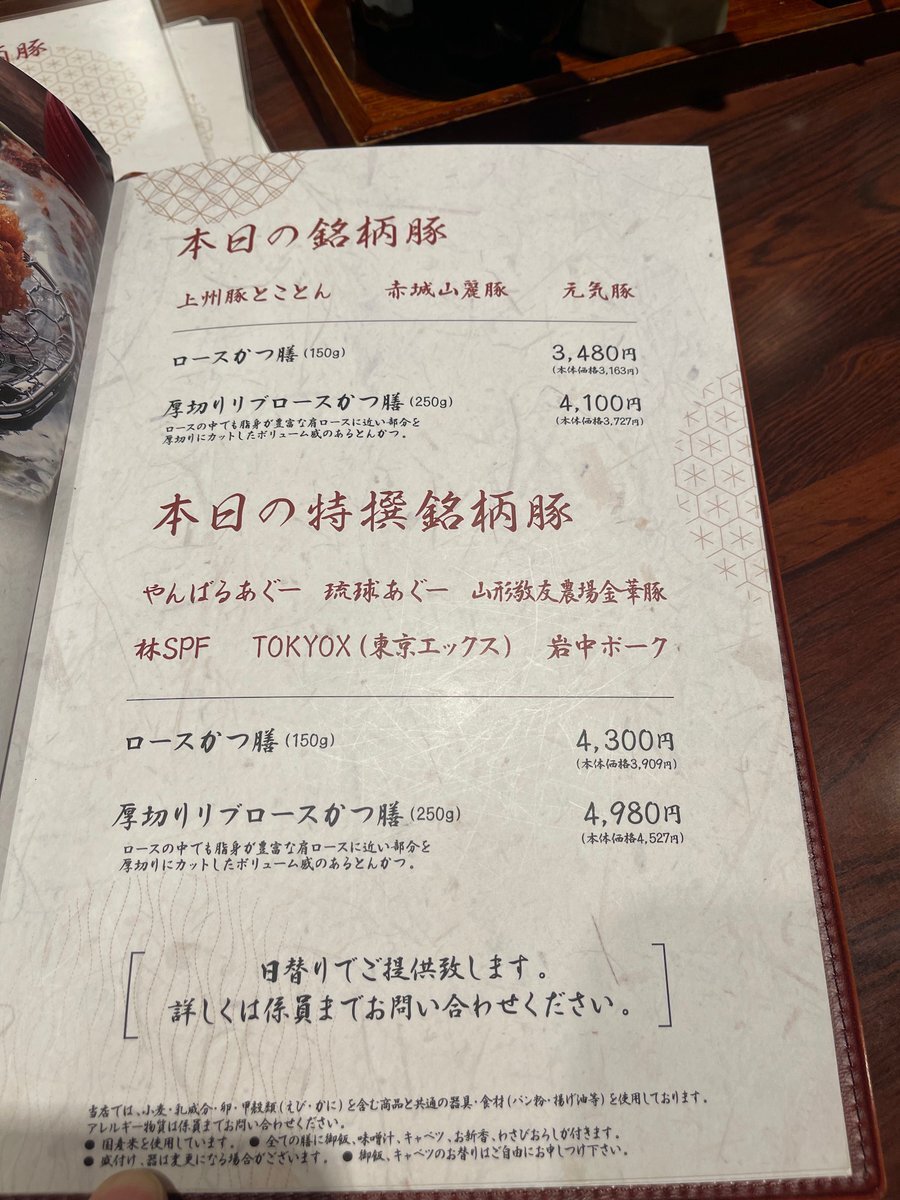 豚
本日の銘柄豚
上州豚とことん 赤城山麓豚 元気豚
ロースかつ膳 (150g) 3,480円
(本体価格3,163円)
厚切りリブロースかつ膳 (250g) 4,100円
(本体価格3,727円)
ロースの中でも脂身が豊富な肩ロースに近い部分を
厚切りにカットしたボリューム感のあるとんかつ。
本日の特撰銘柄豚
やんばるあぐー 琉球あぐー 山形敎友農場金華豚
林SPF TOKYOX (東京エックス) 岩中ポーク
ロースかつ膳 (150g) 4,300円
(本体価格3,909円)
厚切りリブロースかつ膳 (250g) 4,980円
(本体価格4,527円)
ロースの中でも脂身が豊富な肩ロースに近い部分を
厚切りにカットしたボリューム感のあるとんかつ。
日替りでご提供致します。
詳しくは係員までお問い合わせください。
当店では、小麦・乳成分・卵・甲殻類(えび・かに)を含む商品と共通の器具・食材(パン粉・揚げ油等)を使用しております。
アレルギー物質は係員までお問い合わせください。
● 国産米を使用しています。 ● 全ての膳に御飯、味噌汁、キャベツ、お新香、わさびおろしが付きます。
● 盛付け、器は変更になる場合がございます。 ● 御飯、キャベツのお替りはご自由にお申しつけ下さい。